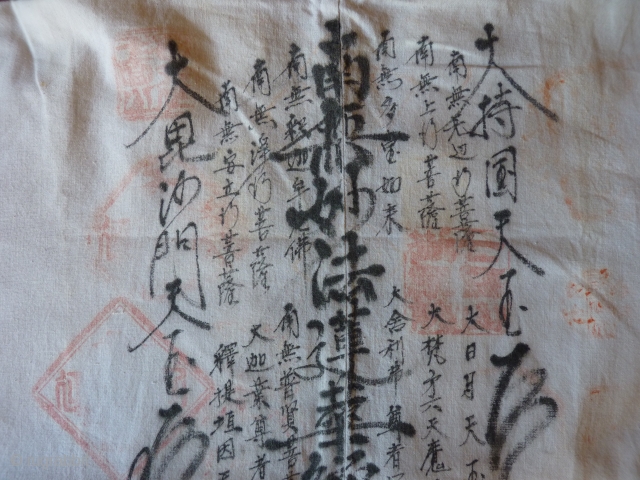 大持国天玉
南無无辺行菩薩
大日月天玉
南無上行菩薩
大梵第六天魔
南無多宝如来
大舎利弗尊者
南無妙法蓮華経
南無釈迦牟尼佛
南無普賢菩
南無浄行菩薩
大迦葉尊者
南無安立行菩薩
釋提垣因天
大毘沙門天玉